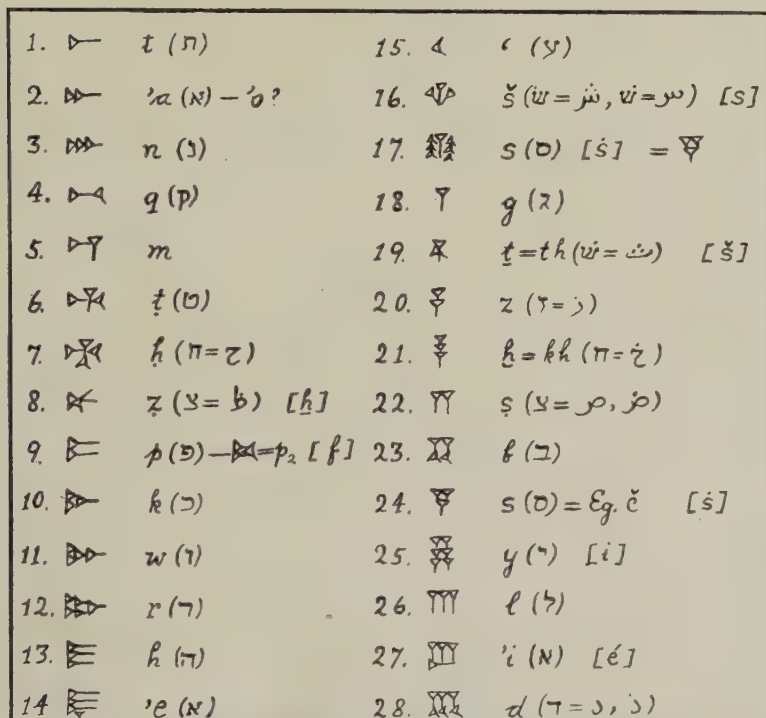 1. 𐎚 t (ת)
2. 𐎀 'a (א) – 'o?
3. 𐎐 n (נ)
4. 𐎖 q (ק)
5. 𐎎 m
6. 𐎉 ṭ (ט)
7. 𐎈 ḥ (ח = ح)
8. 𐎑 ẓ (צ = ظ) [ẖ]
9. 𐎔 p (פ) – = p₂ [f]
10. 𐎋 k (כ)
11. 𐎆 w (ו)
12. 𐎗 r (ר)
13. 𐎅 h (ה)
14 𐎛 'e (א)
15. 𐎓 ʿ (ע)
16. 𐎌 š (שׁ = ش, שׂ = س) [s]
17. 𐎝 s (ס) [ṡ] = 𐎒
18. 𐎂 g (ג)
19. 𐎘 ṯ = th (שׁ = ث) [š]
20. 𐎇 z (ז = ز)
21. 𐎃 ẖ = kh (ח = خ)
22. 𐎕 ṣ (צ = ص, ض)
23. 𐎁 b (ב)
24. 𐎒 s (ס) = Eg. č [ṡ]
25. 𐎊 y (י) [i]
26. 𐎍 l (ל)
27. 𐎜 'i (א) [é]
28. 𐎄 d (ד = د, ذ)